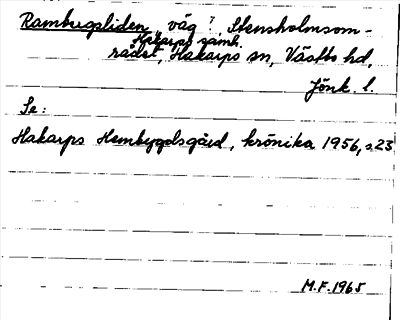 Rambuspliden, väg?, Stensholmsom-
Hakarps samh.
rådet, Hakarps sn, Västbo hd,
Jönk. l.
Se:
Hakarps Hembygdsgård, krönika 1956, s. 23
M.F. 1965